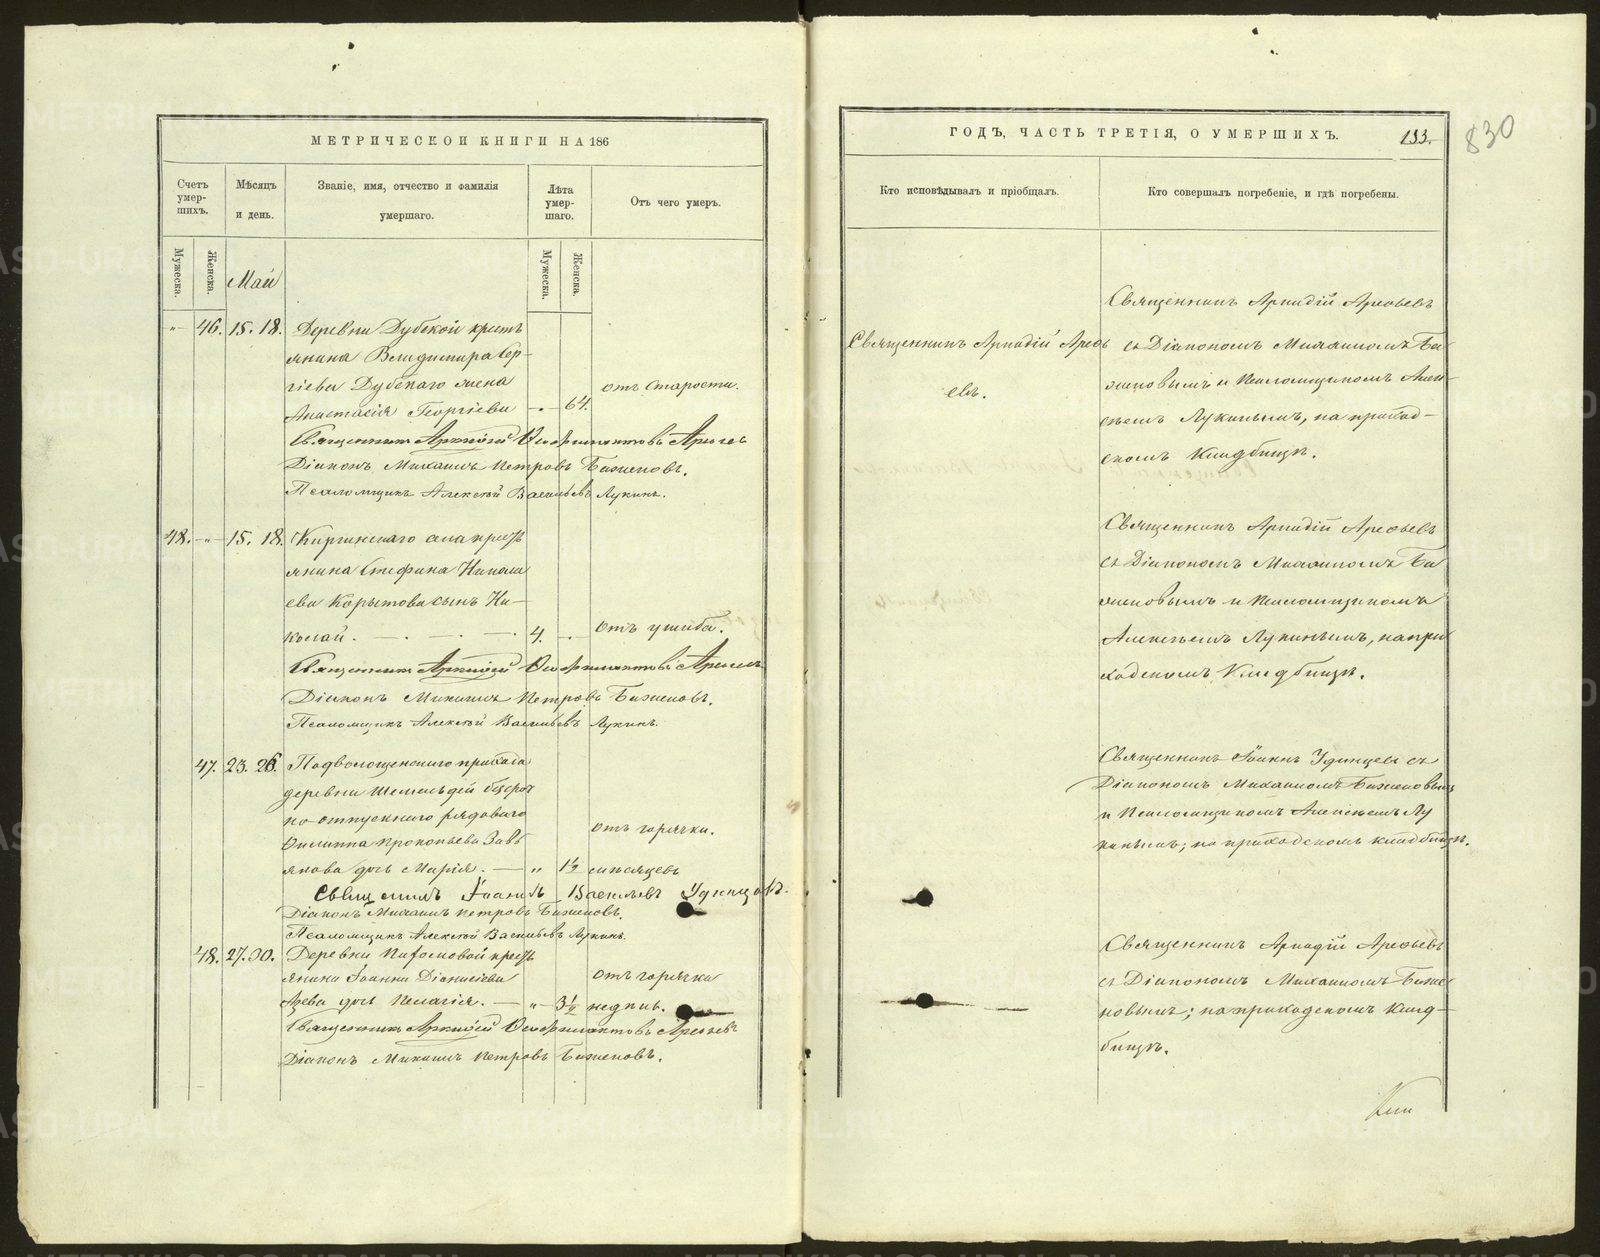 МЕТРИЧЕСКОЙ КНИГИ НА 186
Счетъ умер-шихъ.
Мѣсяцъ и день.
Званіе, имя, отчество и фамилія умершаго.
Лѣта умер-шаго.
Отъ чего умеръ.
Мужеска.
Женска.
Май
Мужеска.
Женска.
46. 15. 18. Деревни Дубской кресть
янина Владимира Сер-
гіева Дубскаго жена
отъ старости.
Анастасія Георгіева — 64.
Священникъ Аркадій Феофилактовъ Арефьевъ
Діаконъ Михаилъ Петровъ Баженовъ.
Псаломщикъ Алексѣй Васильевъ Лукинъ.
48. 15. 18. Киргинскаго села кресть
янина Стефана Никола
ева Корытова сынъ Ни-
колай. 4. отъ ушиба.
Священникъ Аркадій Феофилактовъ Арефьевъ
Діаконъ Михаилъ Петровъ Баженовъ.
Псаломщикъ Алексѣй Васильевъ Лукинъ.
47. 23. 26. Подволошенскаго прихода
деревни безсроч
но-отпускнаго рядоваго
отъ горячки.
Филиппа Прокопьева Завь
ялова дочь Марія. — „ 1½ мѣсяцевъ
Священникъ Іоаннъ Васильевъ Удинцовъ.
Діаконъ Михаилъ Петровъ Баженовъ.
Псаломщикъ Алексѣй Васильевъ Лукинъ.
48. 27. 30. Деревни кресть
янина Іоанна Діонисіева отъ горячки
дочь Пелагія. — „ 3½ недѣль.
Священникъ Аркадій Феофилактовъ Арефьевъ
Діаконъ Михаилъ Петровъ Баженовъ.
ГОДЪ, ЧАСТЬ ТРЕТІЯ, О УМЕРШИХЪ.
133.
830
Кто исповѣдывалъ и пріобщалъ.
Кто совершалъ погребеніе, и гдѣ погребены.
Священникъ Аркадій Арефь
евъ.
Священникъ Аркадій Арефьевъ
съ Діакономъ Михаиломъ Ба
женовымъ и Псаломщикомъ Алек-
сѣемъ Лукинымъ, на приход-
скомъ кладбищѣ.
Священникъ Аркадій Арефьевъ
съ Діакономъ Михаиломъ Ба
женовымъ и Псаломщикомъ
Алексѣемъ Лукинымъ, на при
ходскомъ кладбищѣ.
Священникъ Іоаннъ Удинцевъ съ
Діакономъ Михаиломъ Баженовымъ
и Псаломщикомъ Алексѣемъ Лу
кинымъ; на приходскомъ кладбищѣ.
Священникъ Аркадій Арефьевъ
съ Діакономъ Михаиломъ Баже
новымъ; на приходскомъ клад-
бищѣ.
METRIKI.GASO-URAL.RU